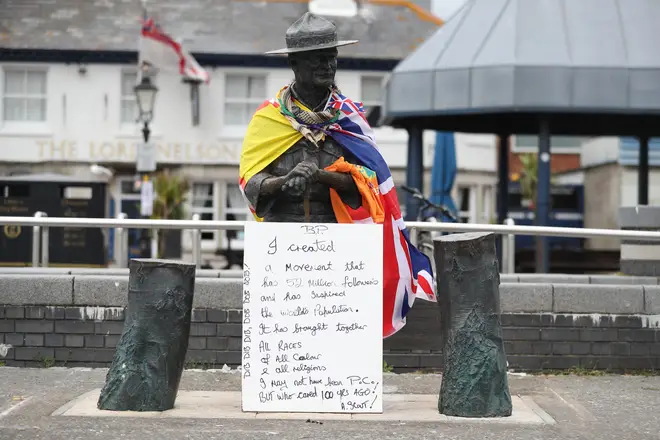 THE LORD NELSON
BP
I created
a Movement that
has 54 Million followers
and has Inspired
the worlds Population.
It has brought together
ALL RACES
of All Colour
& all religions
I may not have been P.C.
BUT who cared 100 YRS AGO!
A. Scout.
DIB DIB DIB, DOB DOB DOB!